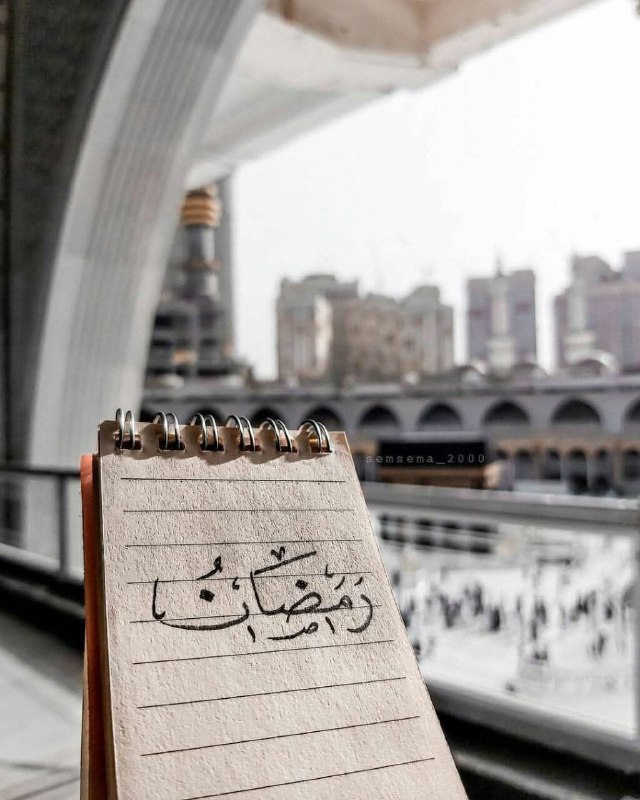 semsema_2000
رَمَضَانُ